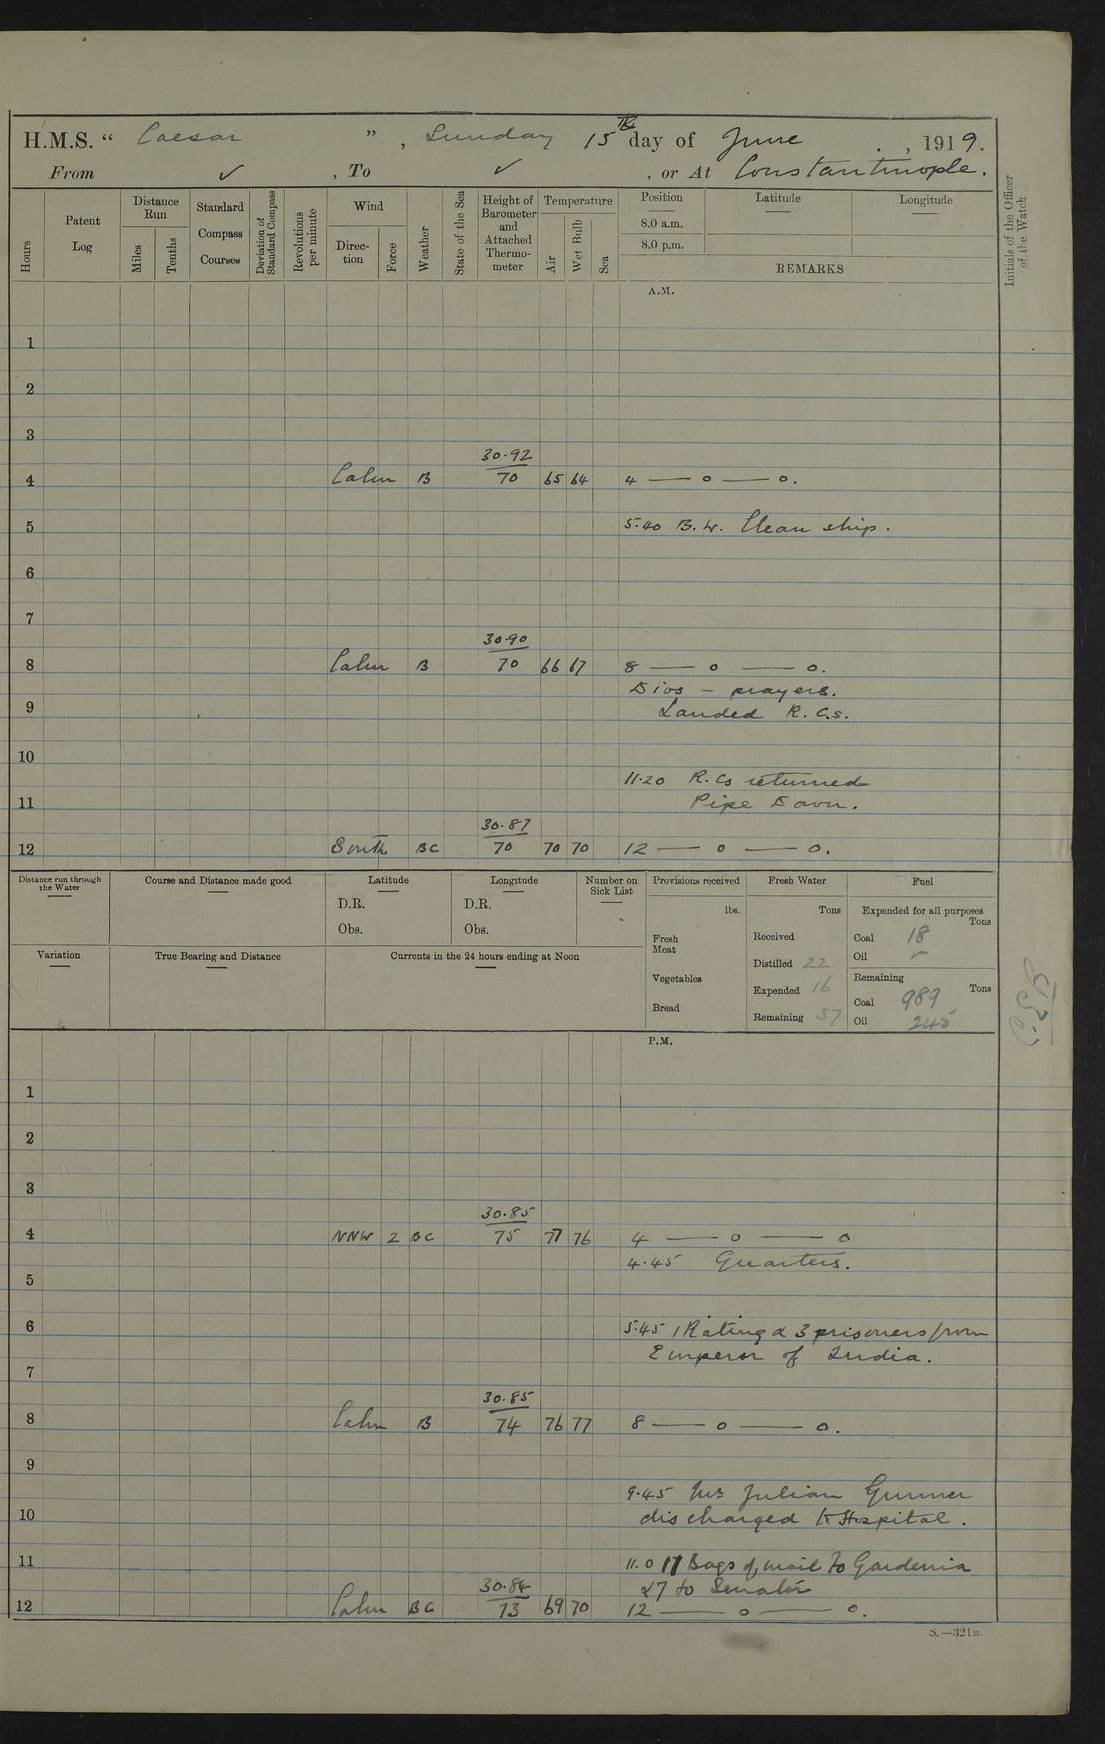 H.M.S. " Caesar " , Sunday 15th day of June , 1919.
From ✓ , To ✓ , or At Constantinople.
Hours
Patent Log
Distance Run
Miles
Tenths
Standard Compass Courses
Deviation of Standard Compass
Revolutions per minute
Wind
Direction
Force
Weather
State of the Sea
Height of Barometer and Attached Thermometer
Temperature
Air
Wet Bulb
Sea
Position
8.0 a.m.
8.0 p.m.
Latitude
Longitude
REMARKS
Initials of the Officer of the Watch
A.M.
1
2
3
30.92
4 Calm B 70 65 64 4 — o — o.
5 5.40 B.W. Clean ship.
6
7
30.90
8 Calm B 70 66 67 8 — o — o.
Divs - prayers.
9 Landed R.C.s.
10
11.20 R.Cs returned
11 Pipe Down.
30.87
12 South BC 70 70 70 12 — o — o.
Distance run through the Water
Course and Distance made good
Latitude
D.R.
Obs.
Longitude
D.R.
Obs.
Number on Sick List
Provisions received
lbs.
Fresh Meat
Vegetables
Bread
Fresh Water
Tons
Received
Distilled 22
Expended 16
Remaining 57
Fuel
Expended for all purposes
Tons
Coal 18
Oil ✓
Remaining
Tons
Coal 989
Oil 245
Variation
True Bearing and Distance
Currents in the 24 hours ending at Noon
P.M.
1
2
3
30.85
4 NNW 2 BC 75 77 76 4 — o — o
4.45 Quarters.
5
6 5.45 1 Rating & 3 prisoners from
Emperor of India.
7
30.85
8 Calm B 74 76 77 8 — o — o.
9
9.45 Mr Julian Gunner
10 discharged to Hospital.
11 11.0 17 Bags of mail to Gardenia
30.84 & 7 to Senator
12 Calm BC 73 69 70 12 — o — o.
S.—321B.